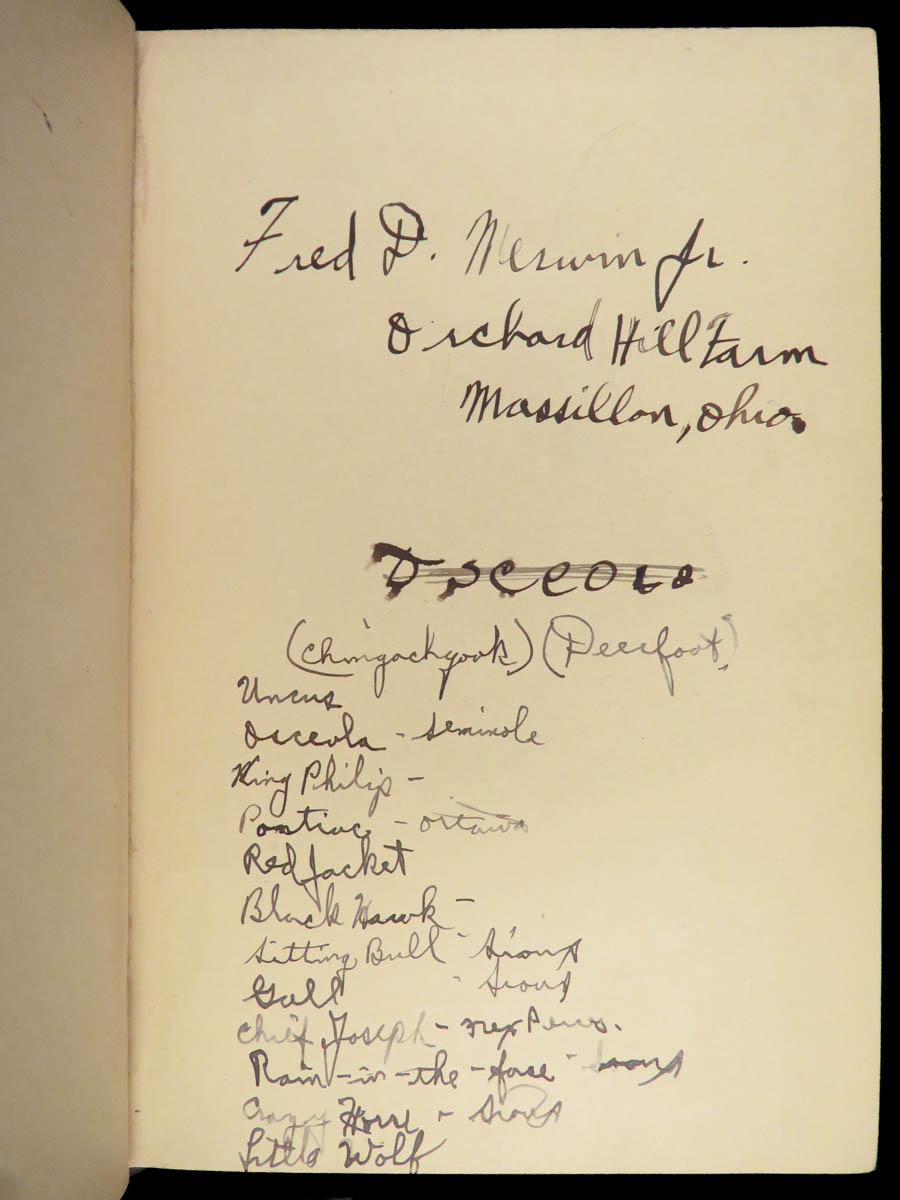 Fred D. Merwin Jr.
Orchard Hill Farm
Massillon, Ohio.
Osceola
(Chingachgook) (Deerfoot)
Uncus
Osceola - Seminole
King Philip -
Pontiac - Ottawa
Red Jacket
Black Hawk -
Sitting Bull - Sioux
Gall - Sioux
Chief Joseph - nez Perce.
Rain-in-the-face - Sioux
Crazy Horse - Sioux
Little Wolf